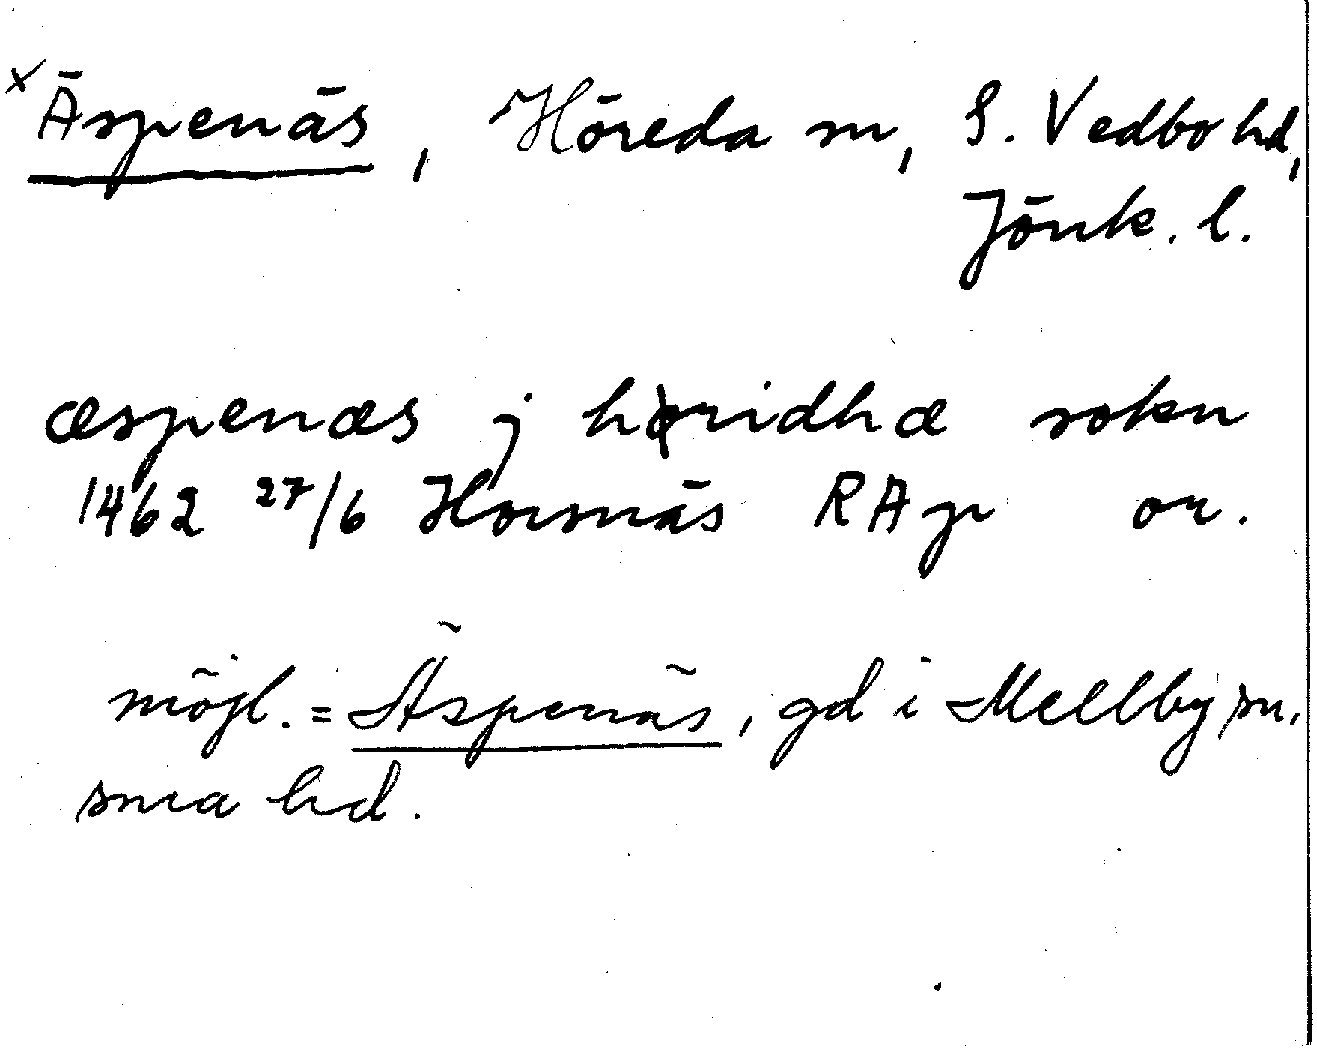 x Äspenäs, Höreda sn, S. Vedbo hd,
Jönk. l.
æspenæs j høridhæ sokn
1462 27/6 Hornäs RAp or.
möjl. = Äspenäs, gd i Mellby sn,
sma hd.